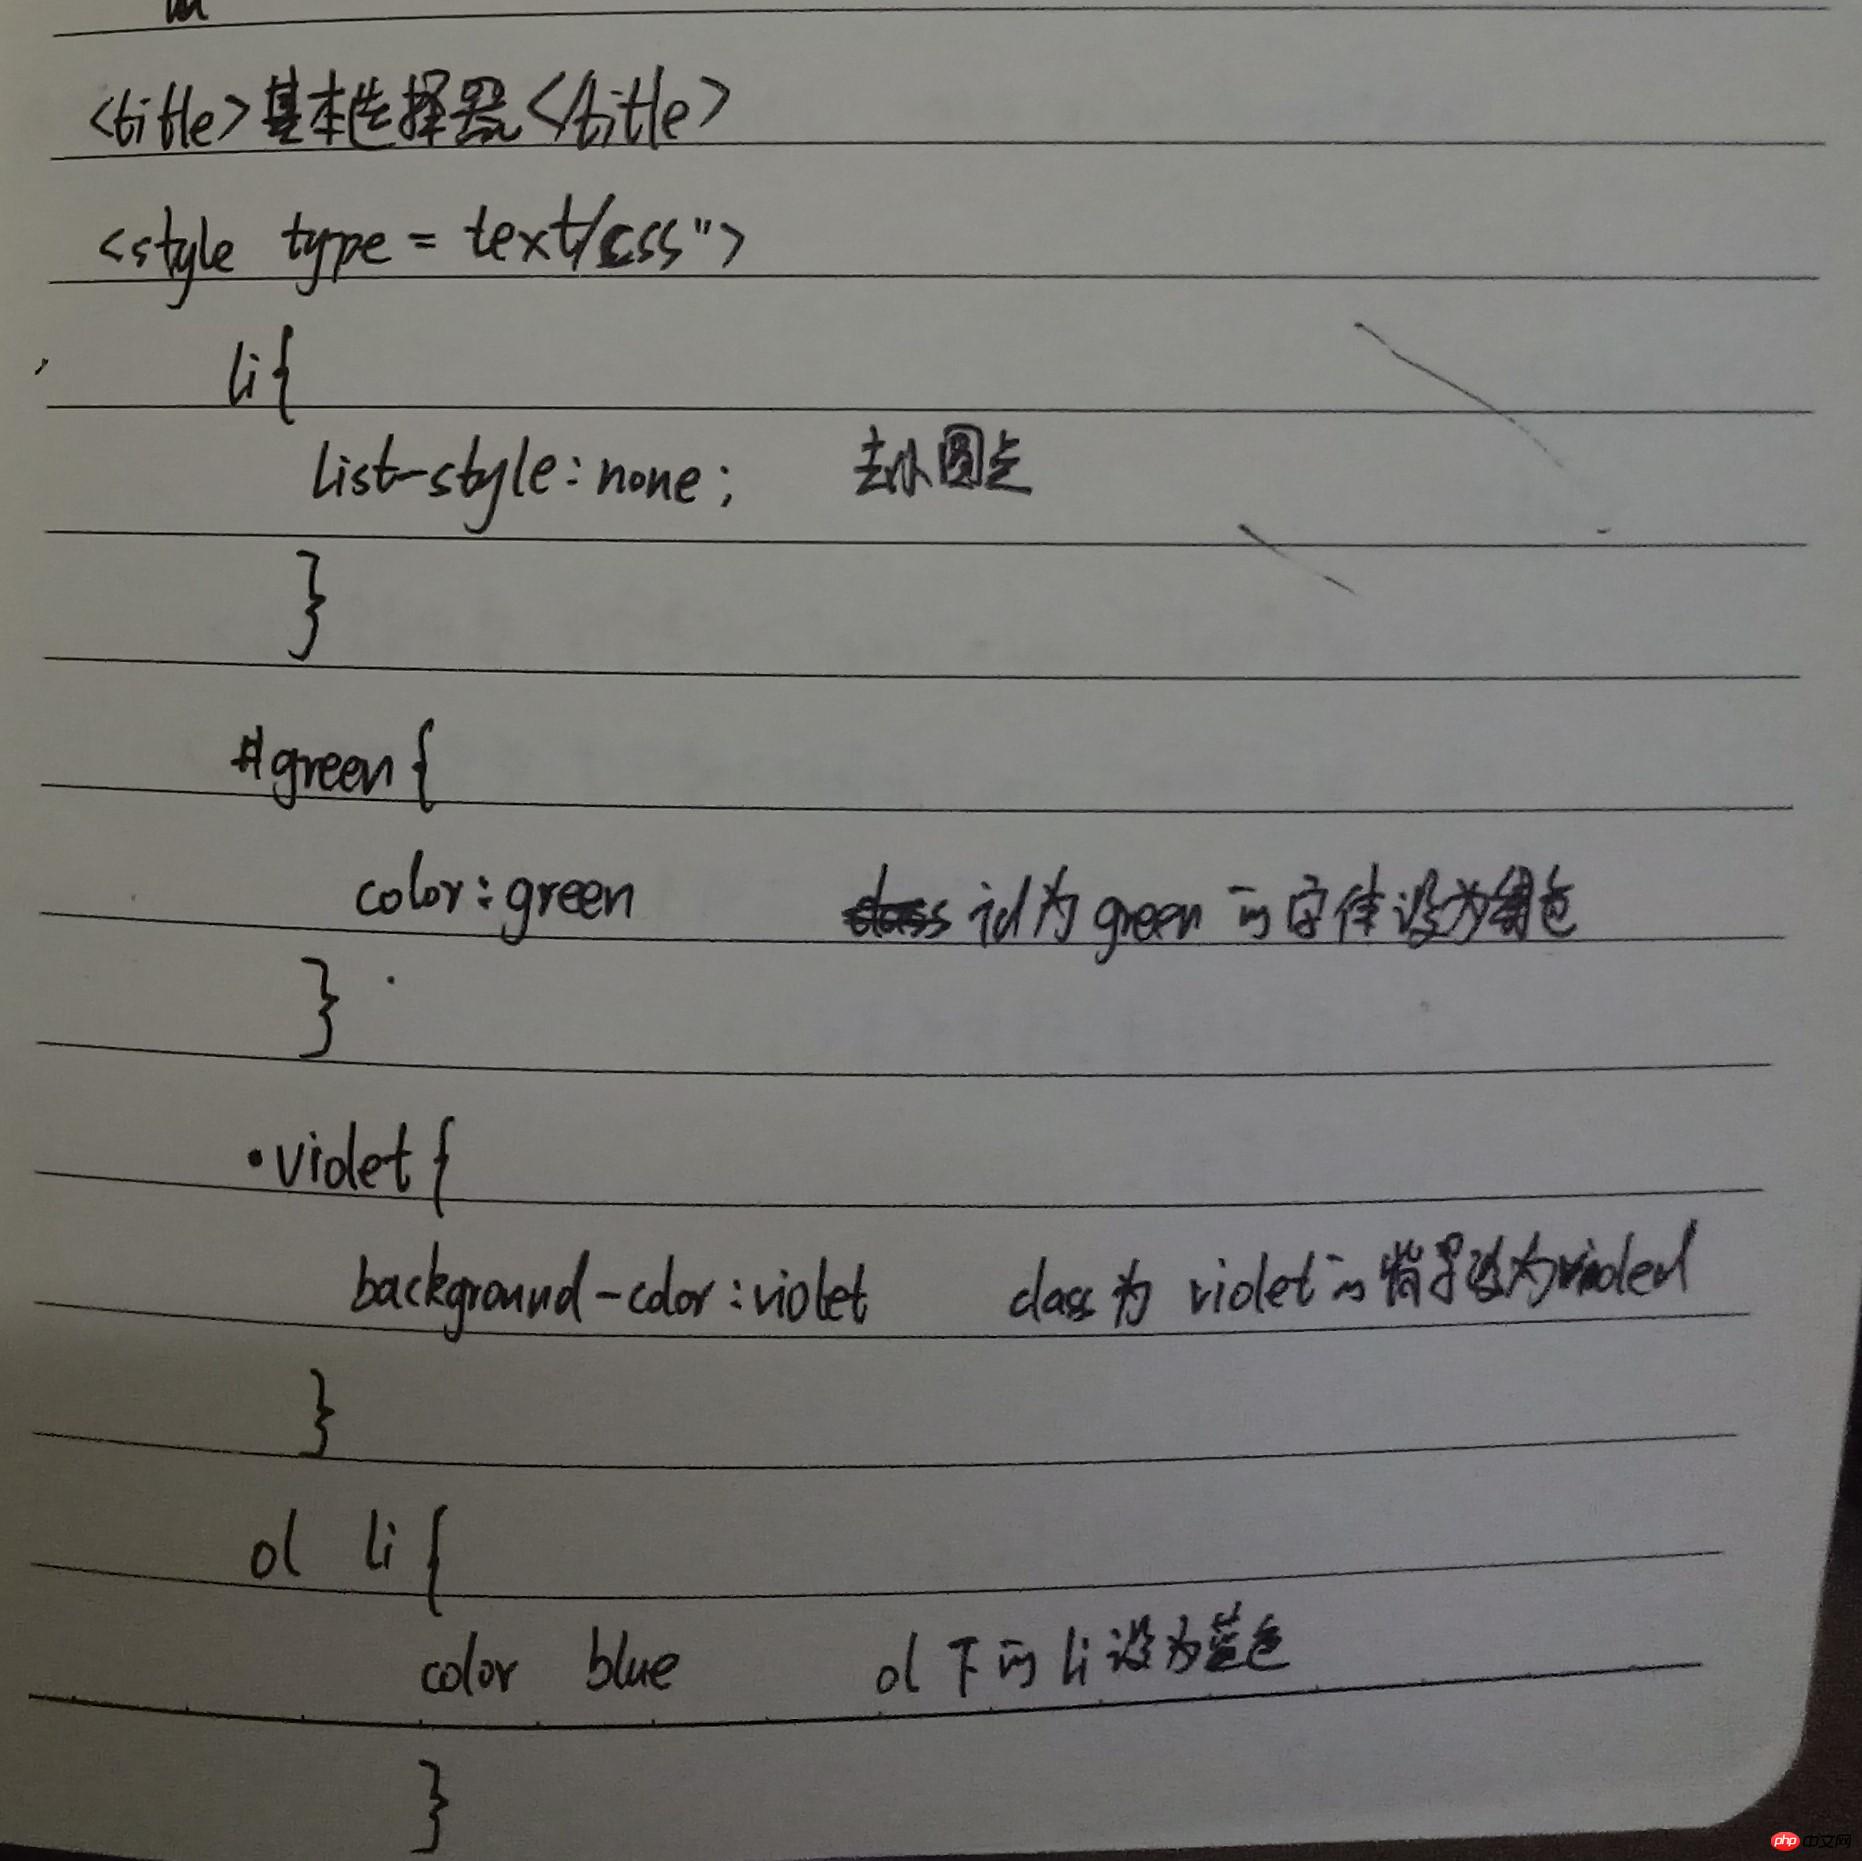 <title>基本选择器</title>
<style type = text/css">
li{
list-style:none; 去小圆点
}
#green{
color:green id为green的字体设为绿色
}
.violet{
background-color:violet class为 violet的背景设为violed
}
ol li{
color blue ol下的li设为蓝色
}
php 中文网